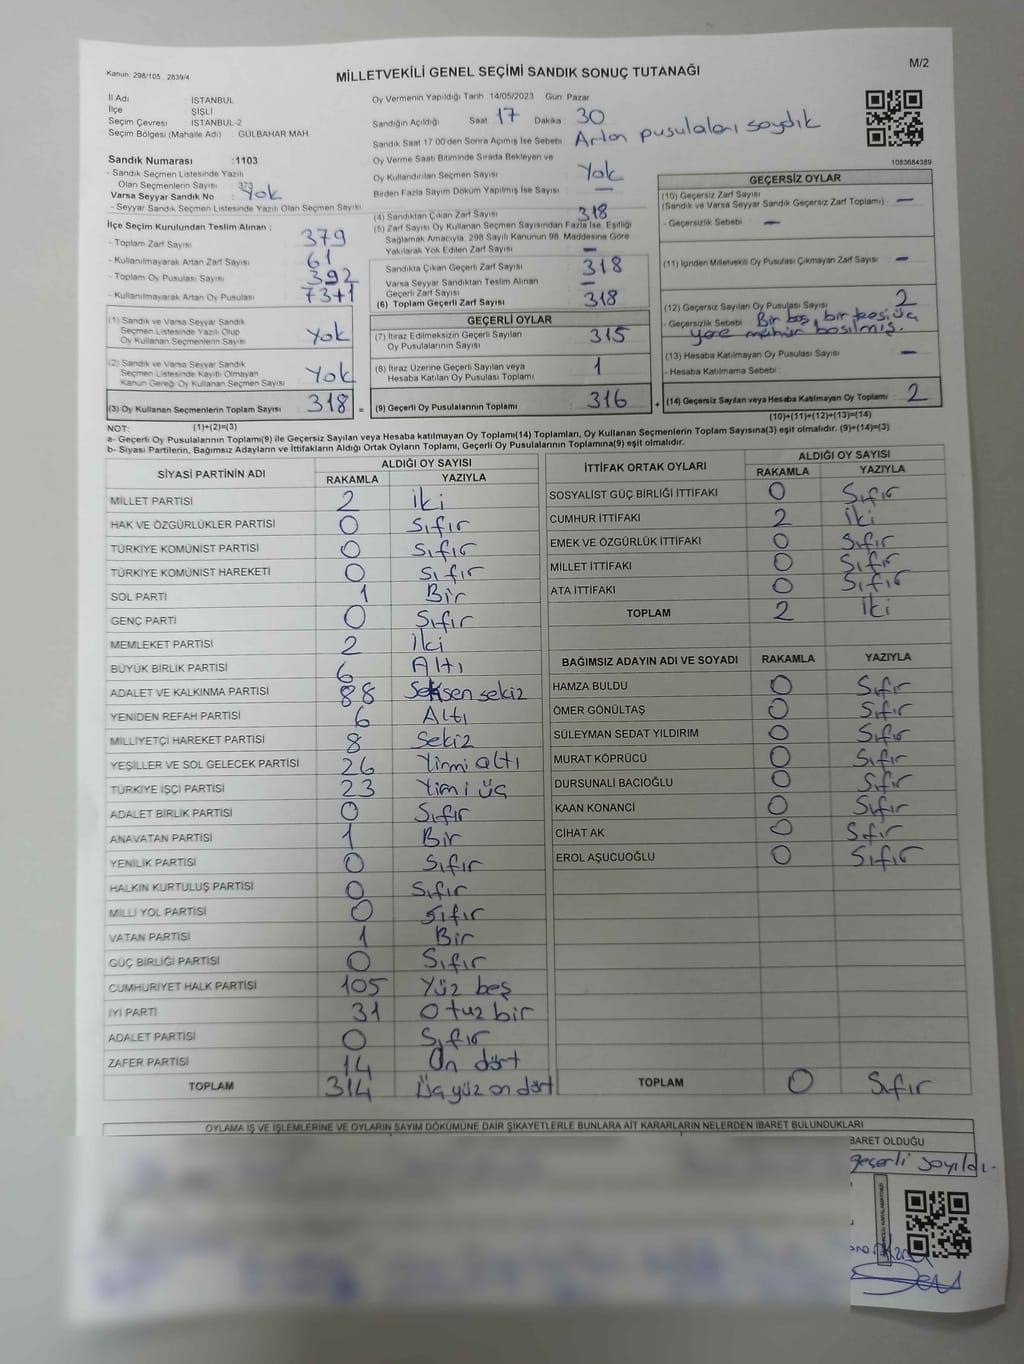 Kanun. 298/105 . 2839/4
MİLLETVEKİLİ GENEL SEÇİMİ SANDIK SONUÇ TUTANAĞI
M/2
İl Adı : İSTANBUL
İlçe : ŞİŞLİ
Seçim Çevresi : İSTANBUL-2
Seçim Bölgesi (Mahalle Adı) : GÜLBAHAR MAH
Oy Vermenin Yapıldığı Tarih :14/05/2023 Gün: Pazar
Sandığın Açıldığı Saat 17 Dakika 30
Sandık Saat 17.00'den Sonra Açılmış İse Sebebi Artan pusulaları saydık
1083684389
Sandık Numarası :1103
- Sandık Seçmen Listesinde Yazılı
Olan Seçmenlerin Sayısı : 373
Varsa Seyyar Sandık No : Yok
- Seyyar Sandık Seçmen Listesinde Yazılı Olan Seçmen Sayısı
İlçe Seçim Kurulundan Teslim Alınan ;
- Toplam Zarf Sayısı 379
- Kullanılmayarak Artan Zarf Sayısı 61
- Toplam Oy Pusulası Sayısı 392
- Kullanılmayarak Artan Oy Pusulası 73+1
(1) Sandık ve Varsa Seyyar Sandık
Seçmen Listesinde Yazılı Olup
Oy Kullanan Seçmenlerin Sayısı Yok
(2) Sandık ve Varsa Seyyar Sandık
Seçmen Listesinde Kayıtlı Olmayan
Kanun Gereği Oy Kullanan Seçmen Sayısı Yok
(3) Oy Kullanan Seçmenlerin Toplam Sayısı 318
(1)+(2)=(3)
Oy Verme Saati Bitiminde Sırada Bekleyen ve
Oy Kullandırılan Seçmen Sayısı Yok
Birden Fazla Sayım Döküm Yapılmış İse Sayısı —
(4) Sandıktan Çıkan Zarf Sayısı 318
(5) Zarf Sayısı Oy Kullanan Seçmen Sayısından Fazla İse, Eşitliği
Sağlamak Amacıyla, 298 Sayılı Kanunun 98. Maddesine Göre
Yakılarak Yok Edilen Zarf Sayısı —
Sandıkta Çıkan Geçerli Zarf Sayısı : 318
Varsa Seyyar Sandıktan Teslim Alınan
Geçerli Zarf Sayısı : —
(6) Toplam Geçerli Zarf Sayısı : 318
GEÇERLİ OYLAR
(7) İtiraz Edilmeksizin Geçerli Sayılan
Oy Pusulalarının Sayısı : 315
(8) İtiraz Üzerine Geçerli Sayılan veya
Hesaba Katılan Oy Pusulası Toplamı : 1
= (9) Geçerli Oy Pusulalarının Toplamı : 316 +
GEÇERSİZ OYLAR
(10) Geçersiz Zarf Sayısı
(Sandık ve Varsa Seyyar Sandık Geçersiz Zarf Toplamı) : —
- Geçersizlik Sebebi : —
(11) İçinden Milletvekili Oy Pusulası Çıkmayan Zarf Sayısı : —
(12) Geçersiz Sayılan Oy Pusulası Sayısı : 2
- Geçersizlik Sebebi : Bir boş, bir
yere mühür basılmış.
(13) Hesaba Katılmayan Oy Pusulası Sayısı : —
- Hesaba Katılmama Sebebi :
(14) Geçersiz Sayılan veya Hesaba Katılmayan Oy Toplamı : 2
(10)+(11)+(12)+(13)=(14)
NOT:
a- Geçerli Oy Pusulalarının Toplamı(9) ile Geçersiz Sayılan veya Hesaba katılmayan Oy Toplamı(14) Toplamları, Oy Kullanan Seçmenlerin Toplam Sayısına(3) eşit olmalıdır. (9)+(14)=(3)
b- Siyasi Partilerin, Bağımsız Adayların ve İttifakların Aldığı Ortak Oyların Toplamı, Geçerli Oy Pusulalarının Toplamına(9) eşit olmalıdır.
SİYASİ PARTİNİN ADI ALDIĞI OY SAYISI
RAKAMLA YAZIYLA
MİLLET PARTİSİ 2 İki
HAK VE ÖZGÜRLÜKLER PARTİSİ 0 Sıfır
TÜRKİYE KOMÜNİST PARTİSİ 0 Sıfır
TÜRKİYE KOMÜNİST HAREKETİ 0 Sıfır
SOL PARTİ 1 Bir
GENÇ PARTİ 0 Sıfır
MEMLEKET PARTİSİ 2 İki
BÜYÜK BİRLİK PARTİSİ 6 Altı
ADALET VE KALKINMA PARTİSİ 88 Seksen sekiz
YENİDEN REFAH PARTİSİ 6 Altı
MİLLİYETÇİ HAREKET PARTİSİ 8 Sekiz
YEŞİLLER VE SOL GELECEK PARTİSİ 26 Yirmi altı
TÜRKİYE İŞÇİ PARTİSİ 23 Yimi üç
ADALET BİRLİK PARTİSİ 0 Sıfır
ANAVATAN PARTİSİ 1 Bir
YENİLİK PARTİSİ 0 Sıfır
HALKIN KURTULUŞ PARTİSİ 0 Sıfır
MİLLİ YOL PARTİSİ 0 Sıfır
VATAN PARTİSİ 1 Bir
GÜÇ BİRLİĞİ PARTİSİ 0 Sıfır
CUMHURİYET HALK PARTİSİ 105 Yüz beş
İYİ PARTİ 31 Otuz bir
ADALET PARTİSİ 0 Sıfır
ZAFER PARTİSİ 14 On dört
TOPLAM 314 Üç yüz on dört
İTTİFAK ORTAK OYLARI ALDIĞI OY SAYISI
RAKAMLA YAZIYLA
SOSYALİST GÜÇ BİRLİĞİ İTTİFAKI 0 Sıfır
CUMHUR İTTİFAKI 2 İki
EMEK VE ÖZGÜRLÜK İTTİFAKI 0 Sıfır
MİLLET İTTİFAKI 0 Sıfır
ATA İTTİFAKI 0 Sıfır
TOPLAM 2 İki
BAĞIMSIZ ADAYIN ADI VE SOYADI RAKAMLA YAZIYLA
HAMZA BULDU 0 Sıfır
ÖMER GÖNÜLTAŞ 0 Sıfır
SÜLEYMAN SEDAT YILDIRIM 0 Sıfır
MURAT KÖPRÜCÜ 0 Sıfır
DURSUNALİ BACIOĞLU 0 Sıfır
KAAN KONANCİ 0 Sıfır
CİHAT AK 0 Sıfır
EROL AŞUCUOĞLU 0 Sıfır
TOPLAM 0 Sıfır
OYLAMA İŞ VE İŞLEMLERİNE VE OYLARIN SAYIM DÖKÜMÜNE DAİR ŞİKAYETLERLE BUNLARA AİT KARARLARIN NELERDEN İBARET BULUNDUKLARI
BARET OLDUĞU
geçerli sayıldı.